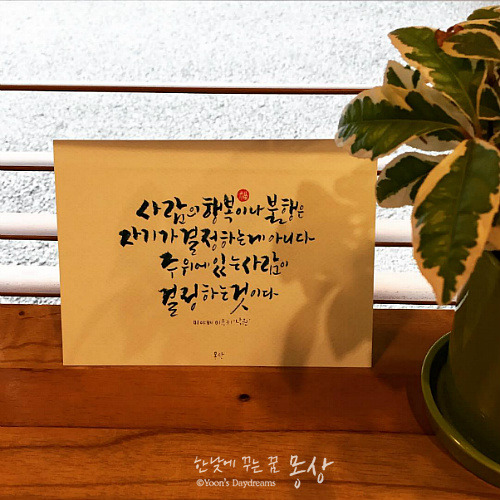 사람의 행복이나 불행은
자기가 결정하는게 아니다
주위에 있는 사람이
결정하는 것이다
몽상
한낮에 꾸는 꿈 몽상
©Yoon's Daydreams